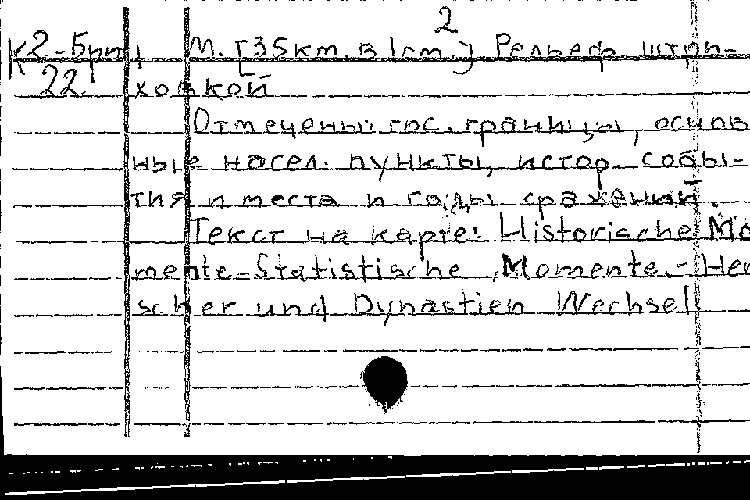 2
К2-Брит М. [35км. в 1см.] Рельеф штри-
22 ховкой
Отмечены гос. границы, основ
ные насел. пункты, истор. собы-
тия и места и годы сражений.
Текст на карте: Historische Mo
mente-Statistische Momente.- Her
scher und Dynastien Wechsel